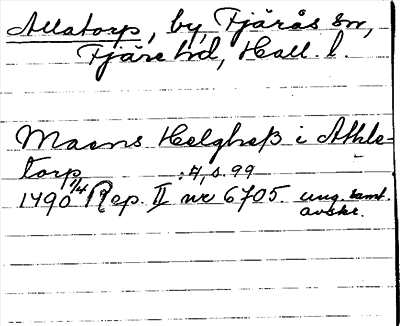 Allatorp, by, Fjärås sn,
Fjäre hd, Hall. l.
Maens Helghess i Athle-
torp : 7, s 99
1490 1/4 Rep. II nr 6705. ung. samt.
avskr.